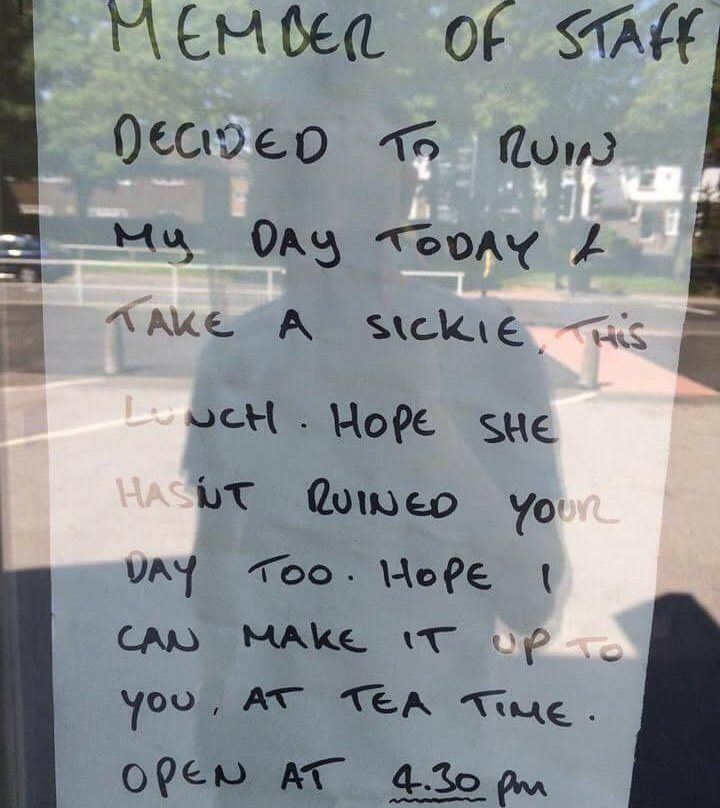 MEMBER OF STAFF
DECIDED TO RUIN
MY DAY TODAY &
TAKE A SICKIE, THIS
LUNCH. HOPE SHE
HASN'T RUINED YOUR
DAY TOO. HOPE I
CAN MAKE IT UP TO
YOU, AT TEA TIME.
OPEN AT 4.30 pm